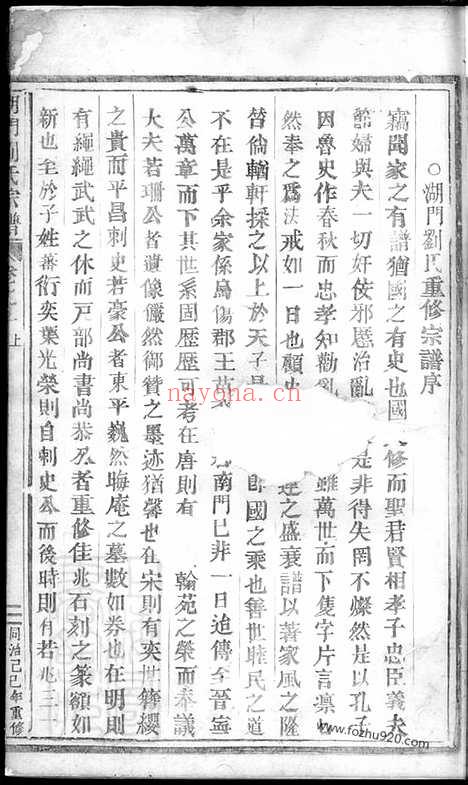 ○湖門劉氏重修宗譜序
竊聞家之有譜猶國之有史也國 修而聖君賢相孝子忠臣義夫
節婦與夫一切奸佞邪慝治亂 是非得失罔不燦然是以孔子
因魯史作春秋而忠孝知勸亂 雖萬世而下隻字片言凛
然奉之爲法戒如一日也顧史 運之盛衰譜以著家風之隆
替倘輶軒採之以上於天子是 國之乘也善世睦民之道
不在是乎余家係烏傷郡王 南門已非一日迨傳至晉寧
公萬章而下其世系固歷歷可考在唐則有 翰苑之榮而奉議
大夫若珊公者遺像儼然御贊之墨迹猶馨也在宋則有奕世簪纓
之貴而平昌刺史若豪公者東平巍然晦庵之墓數如券也在明則
有繩繩武武之休而戸部尚書尚恭公者重修佳兆石刻之篆額如
新也至於子姓蕃衍奕葉光榮則自刺史公而後時則有若兆三
湖門劉氏宗譜 卷之一 上
同治己巳年重修
nayona.cn
www.fozhu920.com